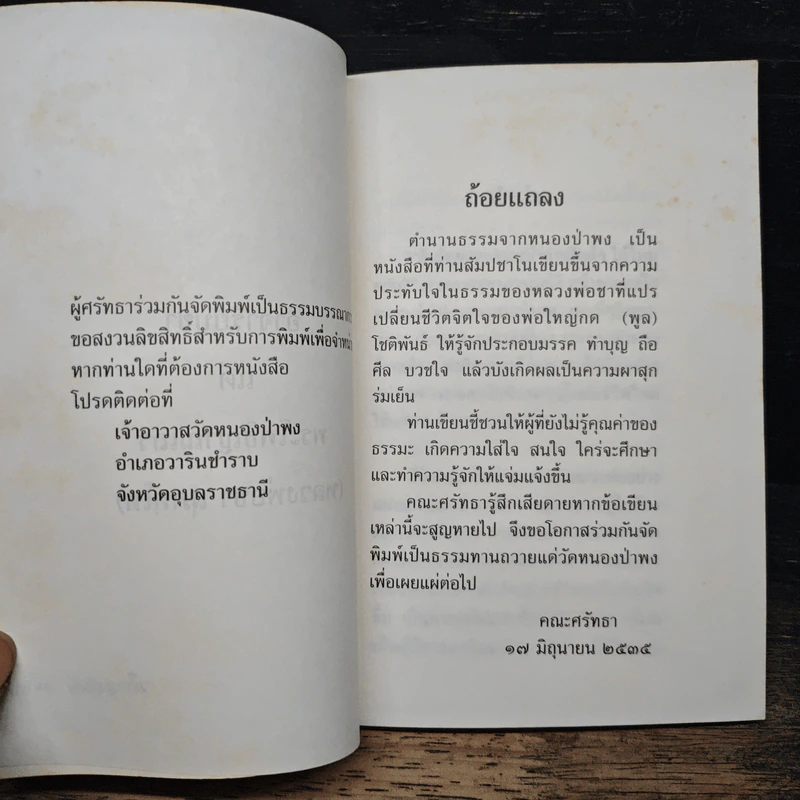 ผู้ศรัทธาร่วมกันจัดพิมพ์เป็นธรรมบรรณาการ
ขอสงวนลิขสิทธิ์สำหรับการพิมพ์เพื่อจำหน่าย
หากท่านใดที่ต้องการหนังสือ
โปรดติดต่อที่
เจ้าอาวาสวัดหนองป่าพง
อำเภอวารินชำราบ
จังหวัดอุบลราชธานี
ถ้อยแถลง
ตำนานธรรมจากหนองป่าพง เป็น
หนังสือที่ท่านสัมปชาโนเขียนขึ้นจากความ
ประทับใจในธรรมของหลวงพ่อชาที่แปร
เปลี่ยนชีวิตจิตใจของพ่อใหญ่กด (พูล)
โชติพันธ์ ให้รู้จักประกอบมรรค ทำบุญ ถือ
ศีล บวชใจ แล้วบังเกิดผลเป็นความผาสุก
ร่มเย็น
ท่านเขียนชี้ชวนให้ผู้ที่ยังไม่รู้คุณค่าของ
ธรรมะ เกิดความใส่ใจ สนใจ ใคร่จะศึกษา
และทำความรู้จักให้แจ่มแจ้งขึ้น
คณะศรัทธารู้สึกเสียดายหากข้อเขียน
เหล่านี้จะสูญหายไป จึงขอโอกาสร่วมกันจัด
พิมพ์เป็นธรรมทานถวายแด่วัดหนองป่าพง
เพื่อเผยแผ่ต่อไป
คณะศรัทธา
๑๗ มิถุนายน ๒๕๓๕